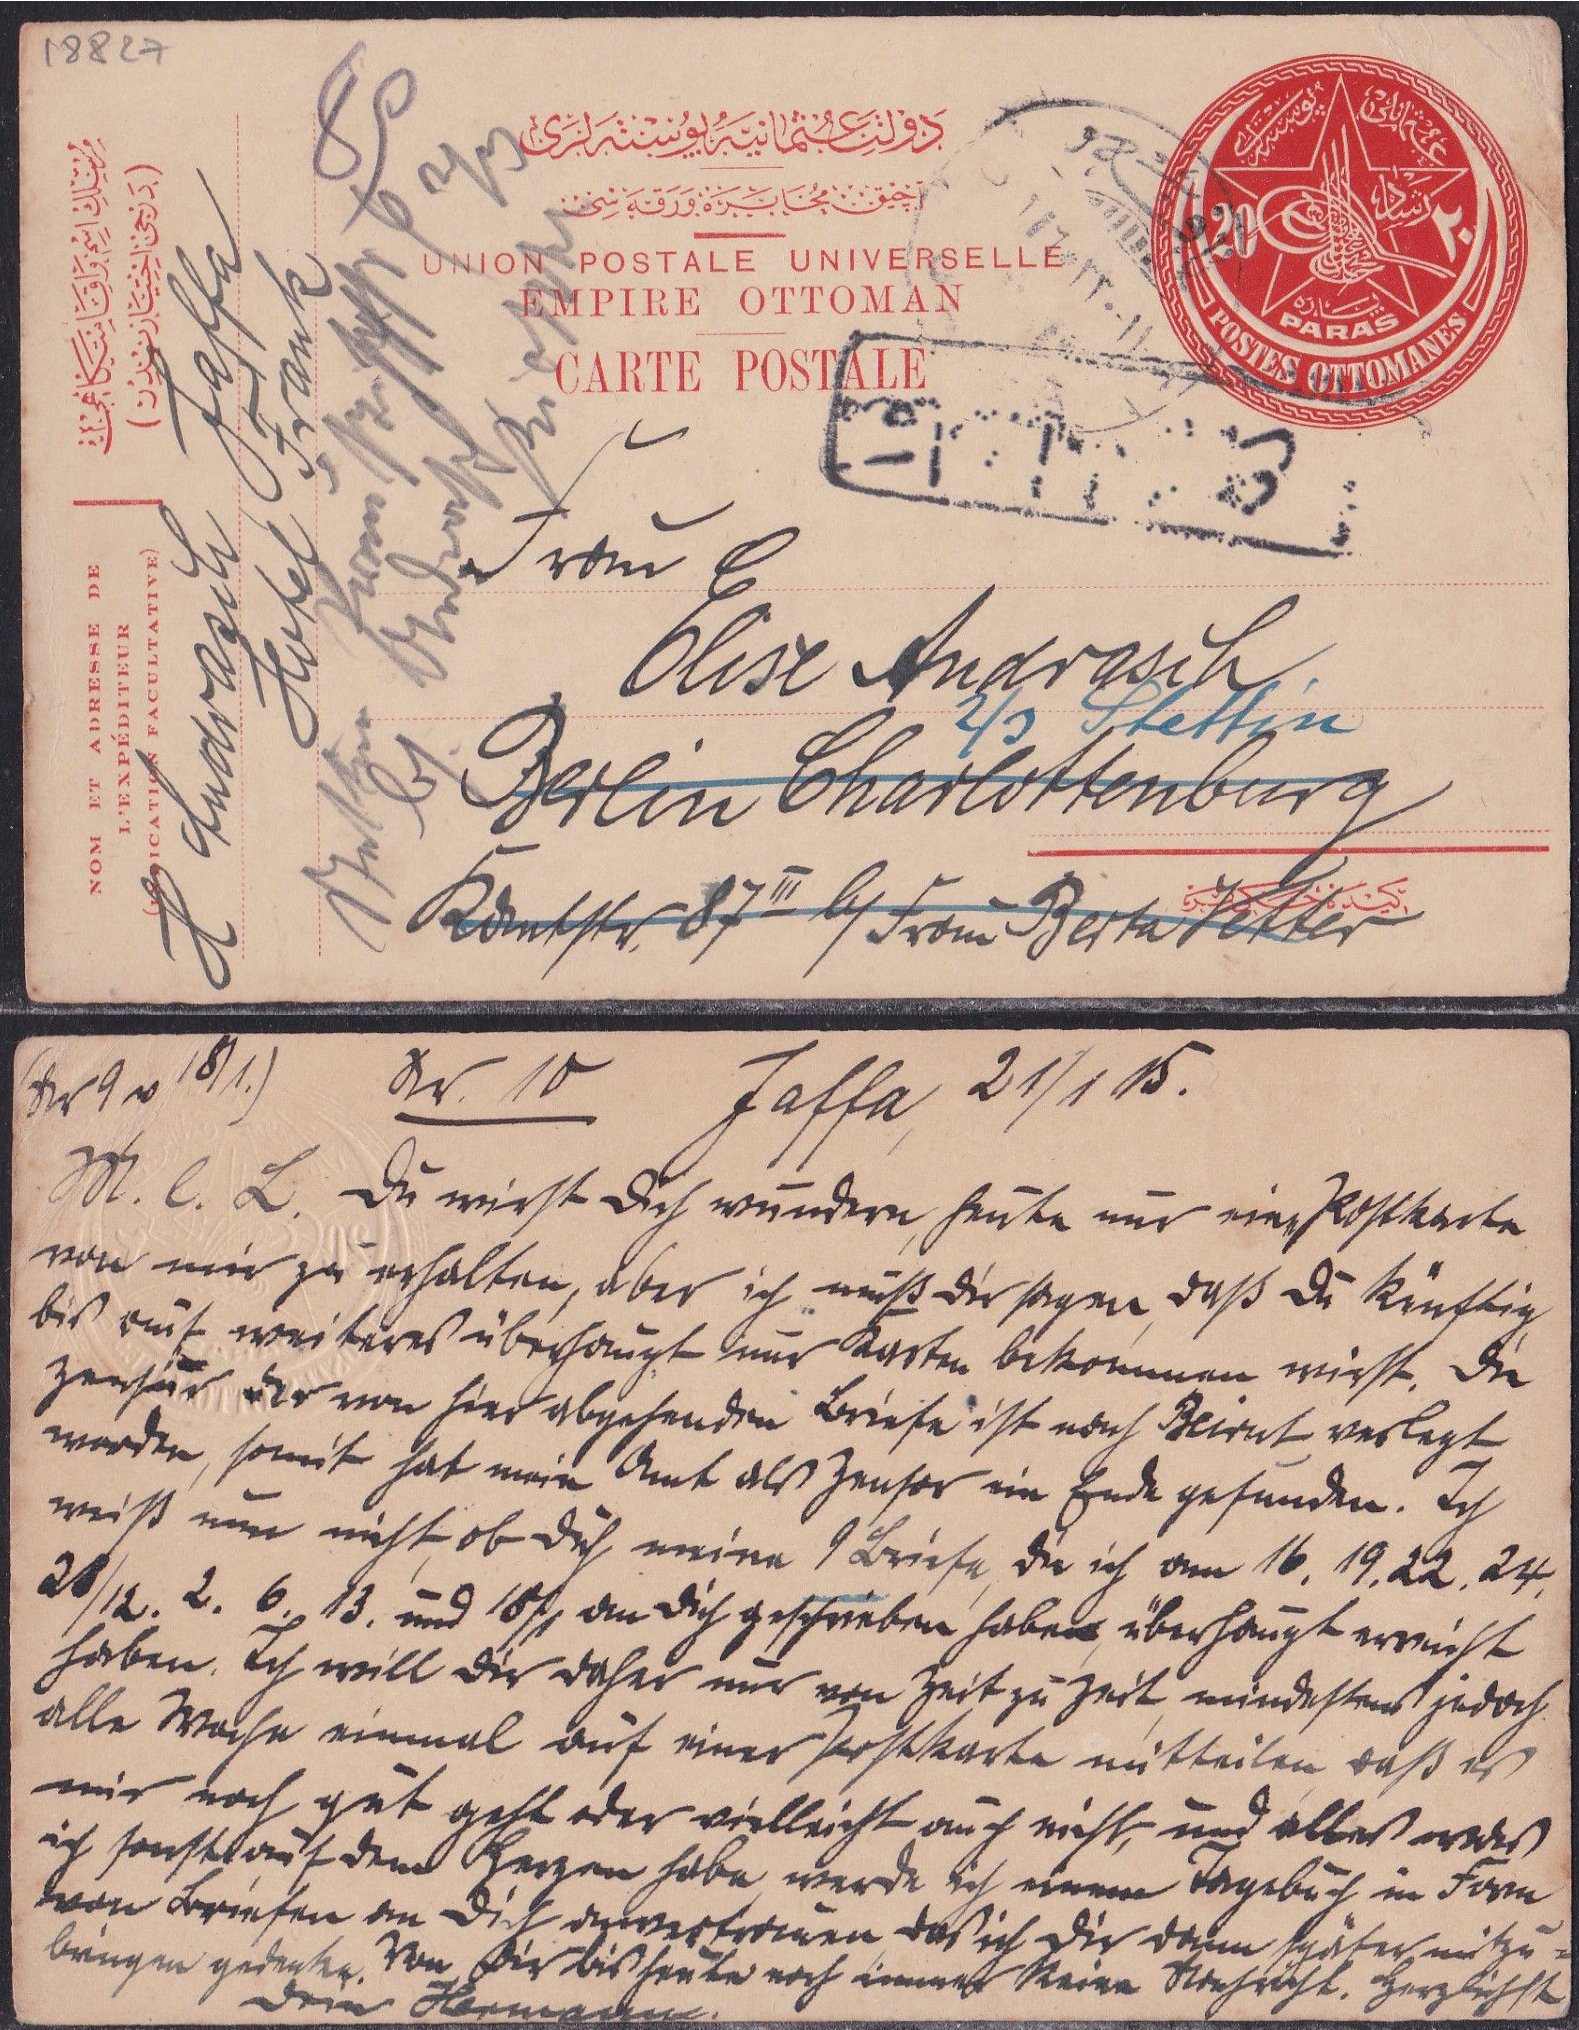 18827
دولت عثمانیه پوسته لری
آچیق مخابره ورقه سی
UNION POSTALE UNIVERSELLE
EMPIRE OTTOMAN
CARTE POSTALE
20
٢٠
PARAS
POSTES OTTOMANES
NOM ET ADRESSE DE
L'EXPÉDITEUR
(INDICATION FACULTATIVE)
H Andrasch Jaffa
Hotel Frank
Frau
Elise Andrasch
Stettin
Berlin Charlottenburg
Kantstr. 87 III b/ Frau Berta Vetter
(Nr 9 v 18/1.) Nr. 10 Jaffa, 21/1 15.
M. l. L. Du wirst Dich wundern, heute nur eine Postkarte
von mir zu erhalten, aber ich muß Dir sagen, daß Du künftig
bis auf weiteres überhaupt nur Karten bekommen wirst. Die
Zensur der von hier abgehenden Briefe ist nach Beirut verlegt
worden, somit hat mein Amt als Zensor ein Ende gefunden. Ich
weiß nun nicht, ob Dich meine 9 Briefe, die ich am 16. 19. 22. 24.
28/12. 2. 6. 13. und 18/1 an Dich geschrieben habe, überhaupt erreicht
haben. Ich will Dir daher nur von Zeit zu Zeit, mindestens jedoch
alle Woche einmal auf einer Postkarte mitteilen, daß es
mir noch gut geht oder vielleicht auch nicht, und alles was
ich sonst auf dem Herzen habe, werde ich einem Tagebuch in Form
von Briefen an Dich anvertrauen, das ich Dir dann später mitzu-
bringen gedenke. Von Dir bis heute noch immer keine Nachricht. Herzlichst
Dein Hermann.